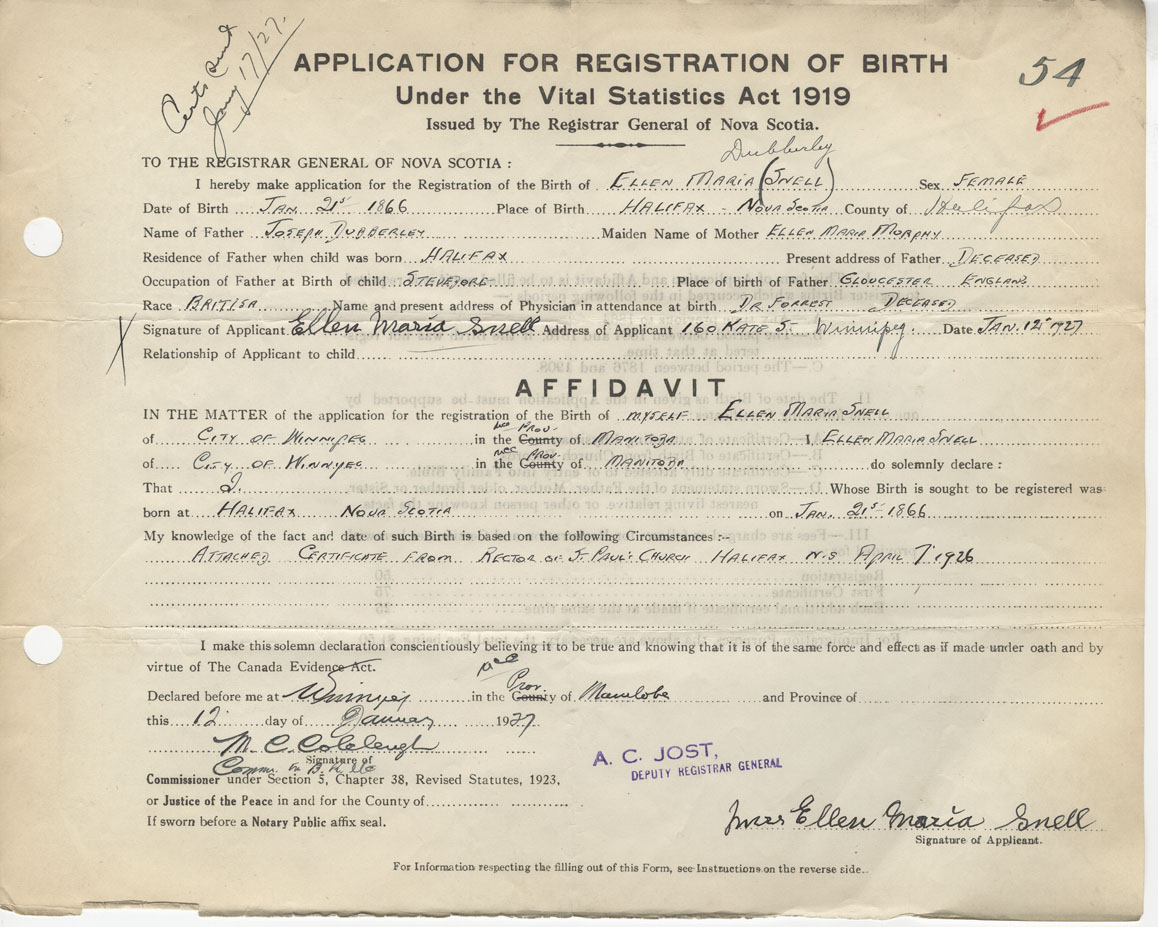 Certs Sent
Jany 17/27.
APPLICATION FOR REGISTRATION OF BIRTH
54
Under the Vital Statistics Act 1919
Issued by The Registrar General of Nova Scotia.
Dubberley
TO THE REGISTRAR GENERAL OF NOVA SCOTIA :
I hereby make application for the Registration of the Birth of ELLEN MARIA (SNELL) Sex FEMALE
Date of Birth JAN. 21st 1866 Place of Birth HALIFAX - NOVA SCOTIA County of Halifax
Name of Father JOSEPH DUBBERLEY Maiden Name of Mother ELLEN MARIA MORPHY
Residence of Father when child was born HALIFAX Present address of Father DECEASED
Occupation of Father at Birth of child STEVEDORE Place of birth of Father GLOUCESTER ENGLAND
Race BRITISH Name and present address of Physician in attendance at birth DR FORREST DECEASED
X Signature of Applicant Ellen Maria Snell Address of Applicant 160 KATE St Winnipeg. Date JAN. 12th 1927
Relationship of Applicant to child
AFFIDAVIT
IN THE MATTER of the application for the registration of the Birth of MYSELF ELLEN MARIA SNELL
mcc PROV
of CITY OF WINNIPEG in the County of MANITOBA I ELLEN MARIA SNELL
mcc PROV
of CITY OF WINNIPEG in the County of MANITOBA do solemnly declare :
That I. Whose Birth is sought to be registered was
born at HALIFAX NOVA SCOTIA on JAN. 21st 1866
My knowledge of the fact and date of such Birth is based on the following Circumstances :-
ATTACHED CERTIFICATE FROM RECTOR OF ST PAUL'S CHURCH HALIFAX N.S APRIL 7' 1926
I make this solemn declaration conscientiously believing it to be true and knowing that it is of the same force and effect as if made under oath and by
virtue of The Canada Evidence Act.
mcc
Prov.
Declared before me at Winnipeg in the County of Manitoba and Province of
this 12 day of January 1927
M. C. Colcleugh
Signature of
Comm. in B. R. etc
Commissioner under Section 5, Chapter 38, Revised Statutes, 1923,
or Justice of the Peace in and for the County of
If sworn before a Notary Public affix seal.
A. C. JOST,
DEPUTY REGISTRAR GENERAL
Mrs Ellen Maria Snell
Signature of Applicant.
For Information respecting the filling out of this Form, see Instructions on the reverse side.